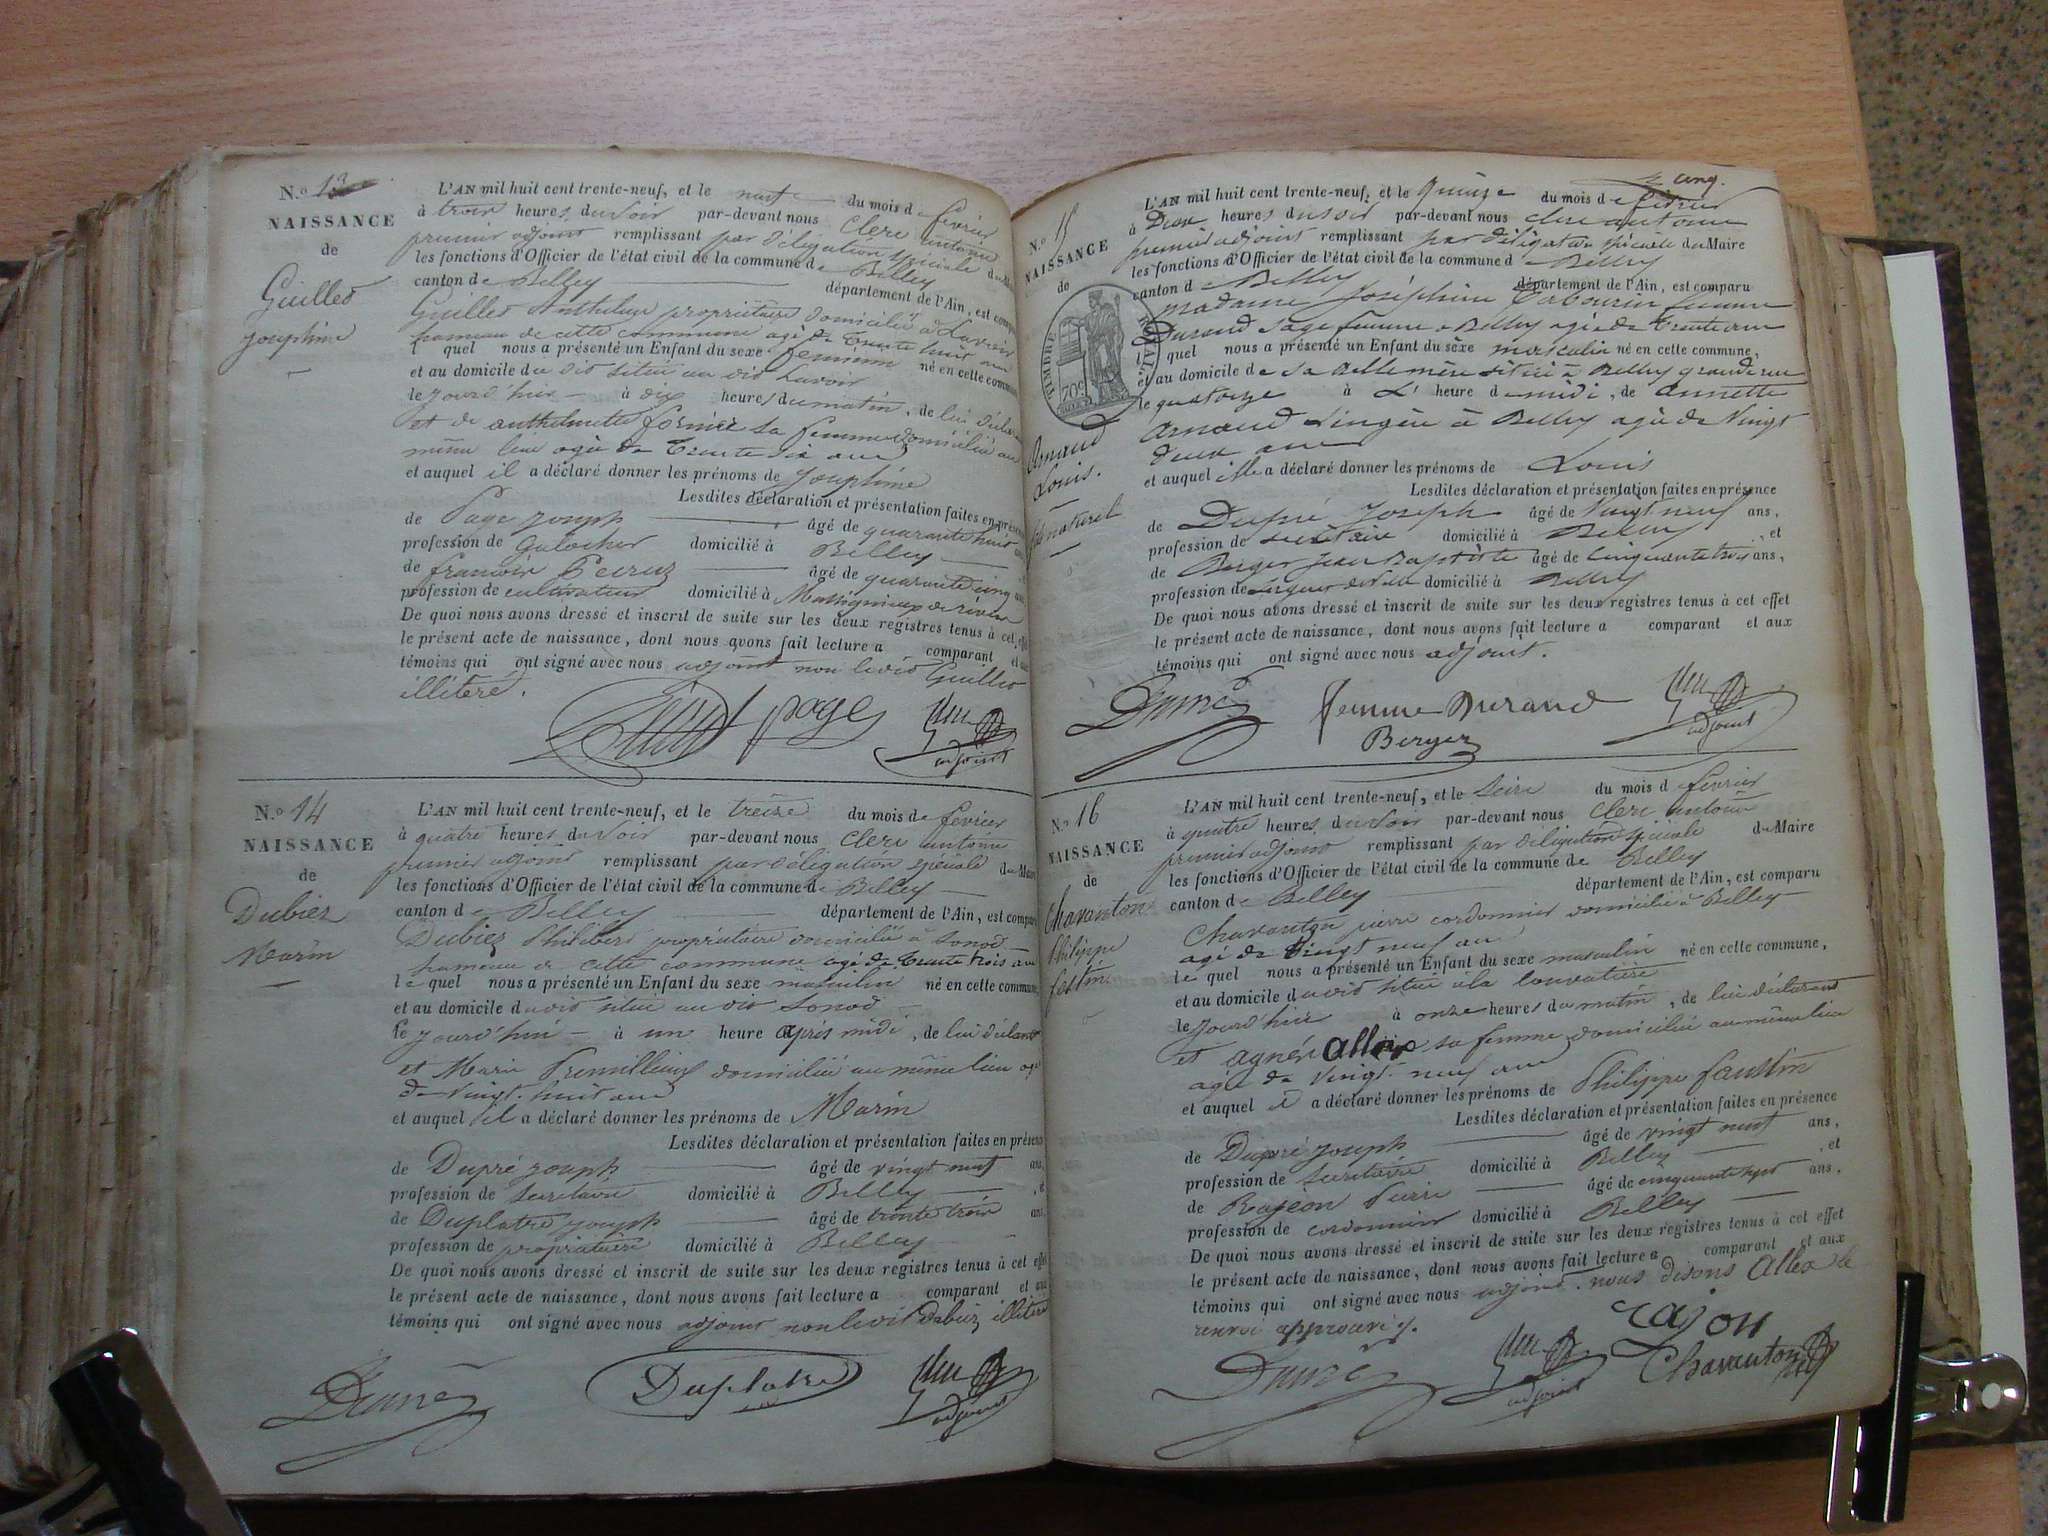 N.º 13
NAISSANCE
de
Guilled
Joséphine
L'AN mil huit cent trente-neuf, et le neuf du mois de février
à trois heures du soir par-devant nous Clerc antoine
premier adjoint remplissant par délégation spéciale du
les fonctions d'Officier de l'état civil de la commune de Belley
canton de Belley département de l'Ain, est comparu
Guilled Anthelme propriétaire domicilié à
hameau de cette commune agé de trente huit ans
l quel nous a présenté un Enfant du sexe féminin né en cette commune
et au domicile du dit situé au dit
le jourd'hui à dix heures du matin, de lui déclarant
et de anthelmette sa femme domiciliée au
même lieu agée de trente six ans
et auquel il a déclaré donner les prénoms de Joséphine
Lesdites déclaration et présentation faites en présence
de Page joseph âgé de quarante huit ans
profession de Galocher domicilié à Belley
de francois âgé de quarante cinq ans
profession de cultivateur domicilié à Massignieux de rives
De quoi nous avons dressé et inscrit de suite sur les deux registres tenus à cet effet
le présent acte de naissance, dont nous avons fait lecture a comparant et aux
témoins qui ont signé avec nous adjoint non ledit Guilled
illiteré.
page
adjoint
N.º 14
NAISSANCE
de
Dubiez
Marin
L'AN mil huit cent trente-neuf, et le treize du mois de février
à quatre heures du soir par-devant nous Clerc antoine
premier adjoint remplissant par délégation spéciale du Maire
les fonctions d'Officier de l'état civil de la commune de Belley
canton de Belley département de l'Ain, est comparu
Dubiez Philibert propriétaire domicilié à Sonod
hameau de cette commune agé de trente trois ans
le quel nous a présenté un Enfant du sexe masculin né en cette commune
et au domicile du dit situé au dit Sonod
le jourd'hui à une heure après midi, de lui déclarant
et Marie domiciliée au même lieu agée
de vingt-huit ans
et auquel il a déclaré donner les prénoms de Marin
Lesdites déclaration et présentation faites en présence
de Dupré joseph âgé de vingt neuf ans,
profession de secrétaire domicilié à Belley, et
de Duplatre joseph âgé de trente trois ans
profession de propriétaire domicilié à Belley
De quoi nous avons dressé et inscrit de suite sur les deux registres tenus à cet effet
le présent acte de naissance, dont nous avons fait lecture a comparant et aux
témoins qui ont signé avec nous adjoint non ledit Dubiez illiteré
Dupré
Duplatre
adjoint
cinq.
N.º 15
NAISSANCE
de
TIMBRE ROYAL
70 c
Arnaud
Louis.
fils naturel
L'AN mil huit cent trente-neuf, et le quinze du mois de février
à Deux heures du soir par-devant nous clerc antoine
premier adjoint remplissant par délégation spéciale du Maire
les fonctions d'Officier de l'état civil de la commune de Belley
canton de Belley département de l'Ain, est comparu
madame Joséphine Tabourin femme
Durand sage femme à Belley agée de trente ans
l quel nous a présenté un Enfant du sèxe masculin né en cette commune,
et au domicile de sa Belle mère situé à Belley grande rue
le quatorze à L' heure de midi, de annette
Arnaud Lingère à Belley agée de Vingt
deux ans
et auquel elle a déclaré donner les prénoms de Louis
Lesdites déclaration et présentation faites en présence
de Dupré Joseph âgé de Vingt neuf ans,
profession de secrétaire domicilié à Belley, et
de Berger Jean Baptiste âgé de Cinquante trois ans,
profession de sergeur de ville domicilié à Belley
De quoi nous avons dressé et inscrit de suite sur les deux registres tenus à cet effet
le présent acte de naissance, dont nous avons fait lecture a comparant et aux
témoins qui ont signé avec nous adjoint.
Dupré
femme Durand
Berger
adjoint
N.º 16
NAISSANCE
de
Chavanton
Philippe
L'AN mil huit cent trente-neuf, et le Seize du mois de février
à quatre heures du soir par-devant nous Clerc antoine
premier adjoint remplissant par délégation spéciale du Maire
les fonctions d'Officier de l'état civil de la commune de Belley
canton de Belley département de l'Ain, est comparu
Chavanton pierre cordonnier domicilié à Belley
agé de vingt neuf ans
le quel nous a présenté un Enfant du sexe masculin né en cette commune,
et au domicile du dit situé à la
le jourd'hui à onze heures du matin, de lui déclarant
et agnès Allex sa femme domiciliée au même lieu
agée de vingt-neuf ans
et auquel il a déclaré donner les prénoms de Philippe faustin
Lesdites déclaration et présentation faites en présence
de Dupré joseph âgé de vingt neuf ans,
profession de Secrétaire domicilié à Belley, et
de Rajeon Pierre âgé de cinquante sept ans,
profession de cordonnier domicilié à Belley
De quoi nous avons dressé et inscrit de suite sur les deux registres tenus à cet effet
le présent acte de naissance, dont nous avons fait lecture a comparant et aux
témoins qui ont signé avec nous adjoint. nous disons Allex le
renvoi approuvé.
rajon
Dupré
adjoint
Chavanton